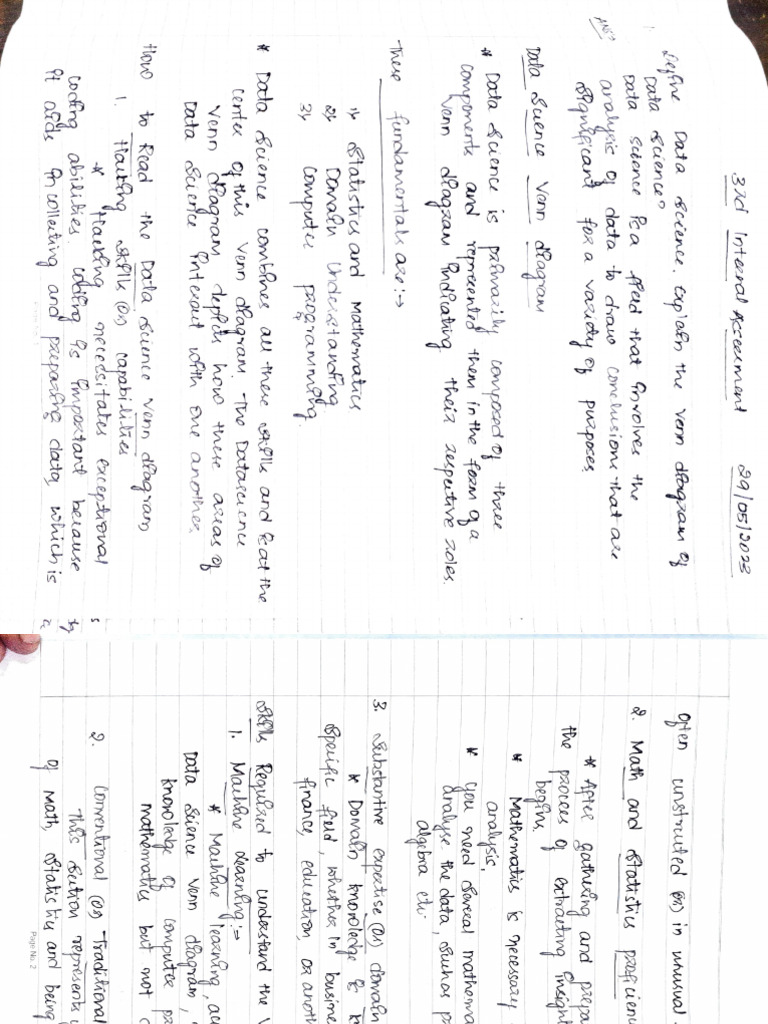 3rd Internal Assessment 29/05/2023
Define Data Science. Explain the Venn diagram of
Data Science?
Data science is a field that involves the
analysis of data to draw conclusions that are
significant for a variety of purposes.
Data Science Venn diagram
* Data Science is primarily composed of three
components and represented them in the form of a
Venn diagram indicating their respective roles.
These fundamentals are :->
1) Statistics and Mathematics
2) Domain Understanding
3) Computer programming.
* Data Science combines all these skills and is at the
center of this Venn diagram. The Datascience
Venn diagram depicts how these areas of
Data Science interact with one another.
How to Read the Data Science Venn diagram
1. Hacking skills (or) capabilities
* Hacking necessitates exceptional
coding abilities. Coding is important because
it aids in collecting and preparing data, which is
often unstructed (or) in unusual
2. Math and Statistics proficienc
* After gathering and prepa
the process of extracting insight
begins.
* Mathematics is necessary
analysis.
* You need several mathema
analyse the data, such as p
algebra etc.
3. Substantive expertise (or) domain
* Domain knowledge is k
specific field, whether in busine
finance, education, or anoth
Skills Required to understand the V
1. Machine Learning:-
* Machine learning, acc
Data Science Venn diagram,
knowledge of computer pr
mathematics but not
2. Conventional (or) Traditional
This section represents
of math, statistics and being
Page No. 2